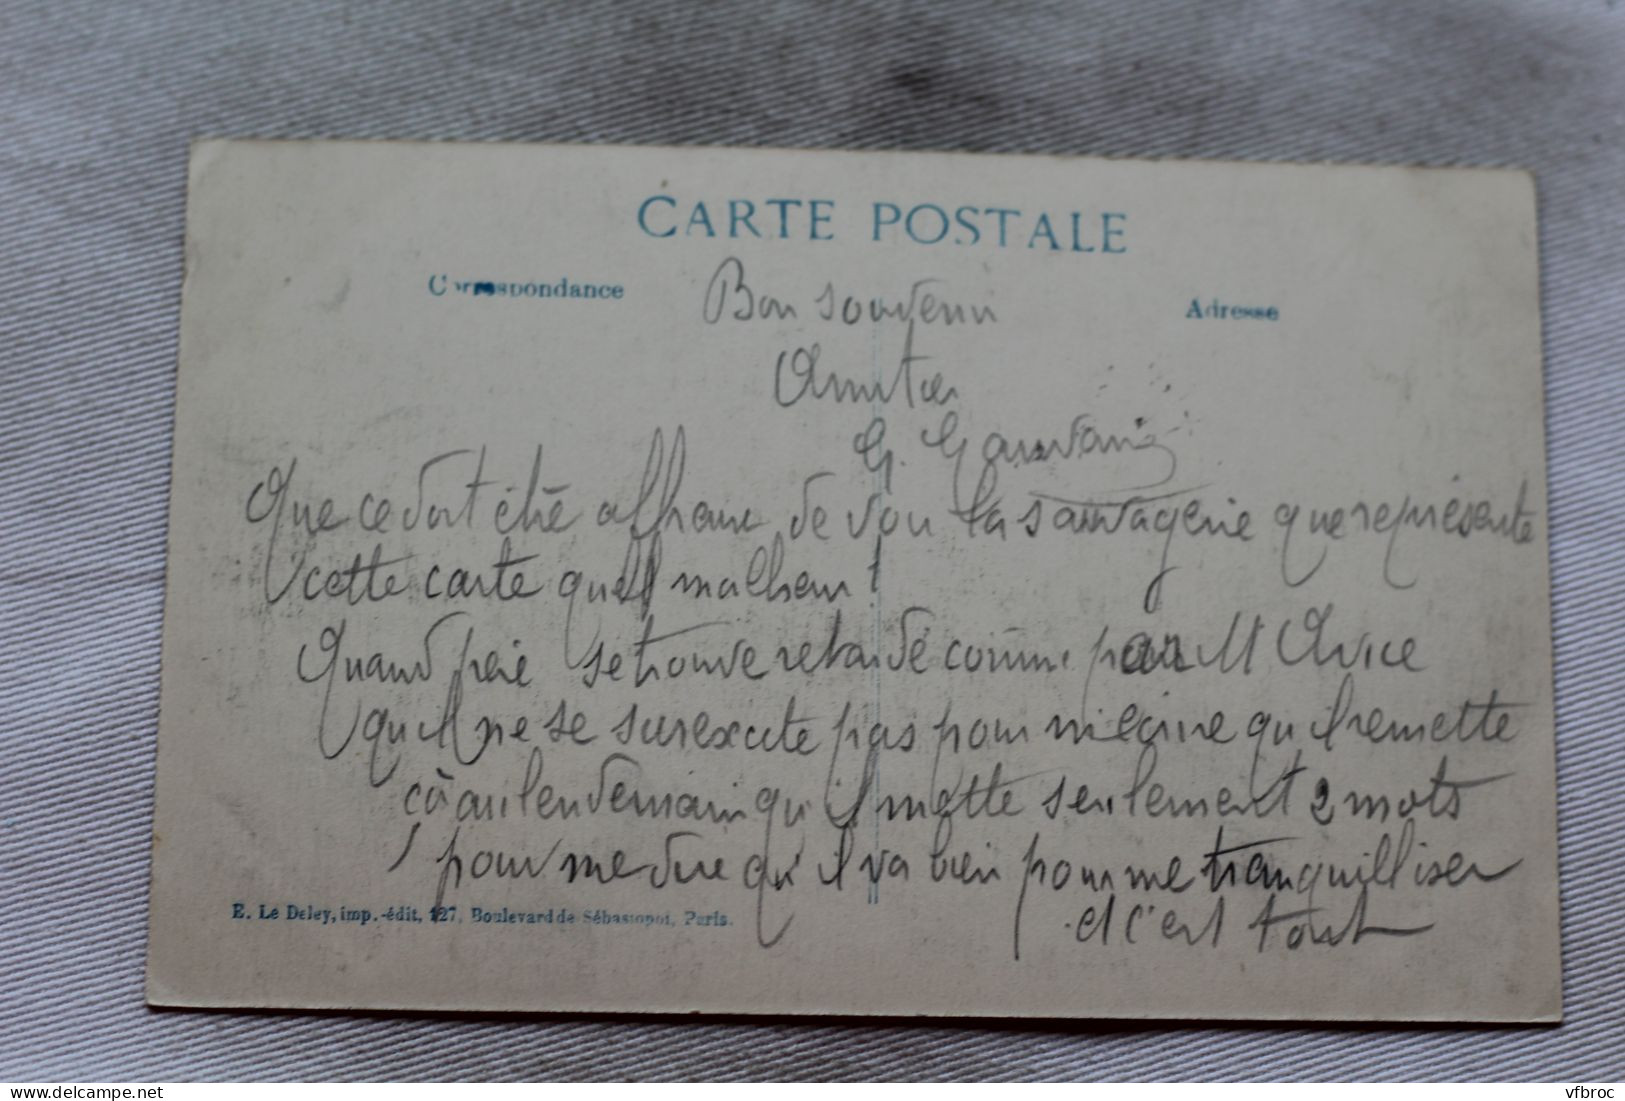 CARTE POSTALE
Correspondance
Adresse
Bon souvenir
Amitiés
G.
Que ce doit être affreux de voir la sauvagerie que représente
cette carte quel malheur!
Quand se trouve retardé comme par M Avice
qu'il ne se surexcite pas pour m'écrire qu'il remette
çà au lendemain qu'il mette seulement 2 mots
pour me dire qu'il va bien pour me tranquilliser
et c'est tout
E. Le Deley, imp.-édit, 127, Boulevard de Sébastopol, Paris.
vfbroc